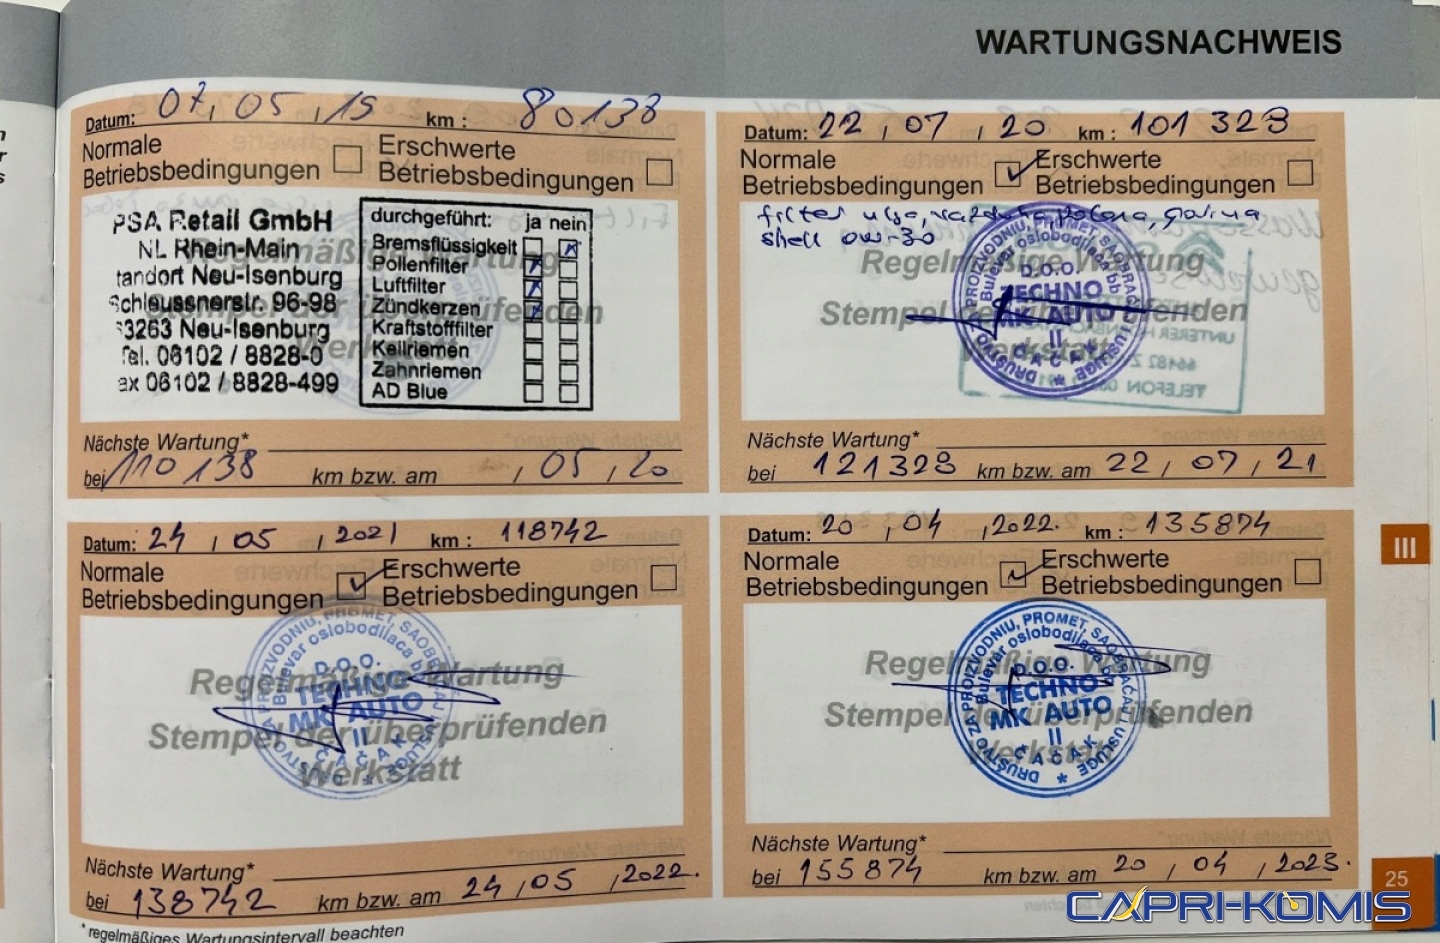 WARTUNGSNACHWEIS
Datum: 07, 05, 19 km: 80138
Normale
Betriebsbedingungen
Erschwerte
Betriebsbedingungen
PSA Retail GmbH
NL Rhein-Main
tandort Neu-Isenburg
Schleussnerstr. 96-98
63263 Neu-Isenburg
Tel. 06102 / 8828-0
ax 06102 / 8828-499
durchgeführt: ja nein
Bremsflüssigkeit
Pollenfilter
Luftfilter
Zündkerzen
Kraftstofffilter
Keilriemen
Zahnriemen
AD Blue
Regelmäßige Wartung
Stempel der überprüfenden
Werkstatt
Nächste Wartung*
bei 110138 km bzw. am , 05, 20
Datum: 22, 07, 20 km: 101328
Normale
Betriebsbedingungen
Erschwerte
Betriebsbedingungen
filter ulja, vazduha, polena, goriva
shell 0W-30
Regelmäßige Wartung
Stempel der überprüfenden
Werkstatt
DRUŠTVO ZA PROIZVODNJU, PROMET, SAOBRAĆAJ I USLUGE
Bulevar oslobodilaca bb
D.O.O.
TECHNO
MK AUTO
II
ČAČAK
UNTERER
66482 Z
TELEFON
Nächste Wartung*
bei 121328 km bzw. am 22, 07, 21
Datum: 24, 05, 2021 km: 118742
Normale
Betriebsbedingungen
Erschwerte
Betriebsbedingungen
Regelmäßige Wartung
Stempel der überprüfenden
Werkstatt
DRUŠTVO ZA PROIZVODNJU, PROMET, SAOBRAĆAJ I USLUGE
Bulevar oslobodilaca bb
D.O.O.
TECHNO
MK AUTO
II
ČAČAK
Nächste Wartung*
bei 138742 km bzw. am 24, 05, 2022.
Datum: 20, 04, 2022. km: 135874
Normale
Betriebsbedingungen
Erschwerte
Betriebsbedingungen
Regelmäßige Wartung
Stempel der überprüfenden
Werkstatt
DRUŠTVO ZA PROIZVODNJU, PROMET, SAOBRAĆAJ I USLUGE
Bulevar oslobodilaca bb
D.O.O.
TECHNO
MK AUTO
II
ČAČAK
Nächste Wartung*
bei 155874 km bzw. am 20, 04, 2023.
III
25
*regelmäßiges Wartungsintervall beachten
CAPRI-KOMIS